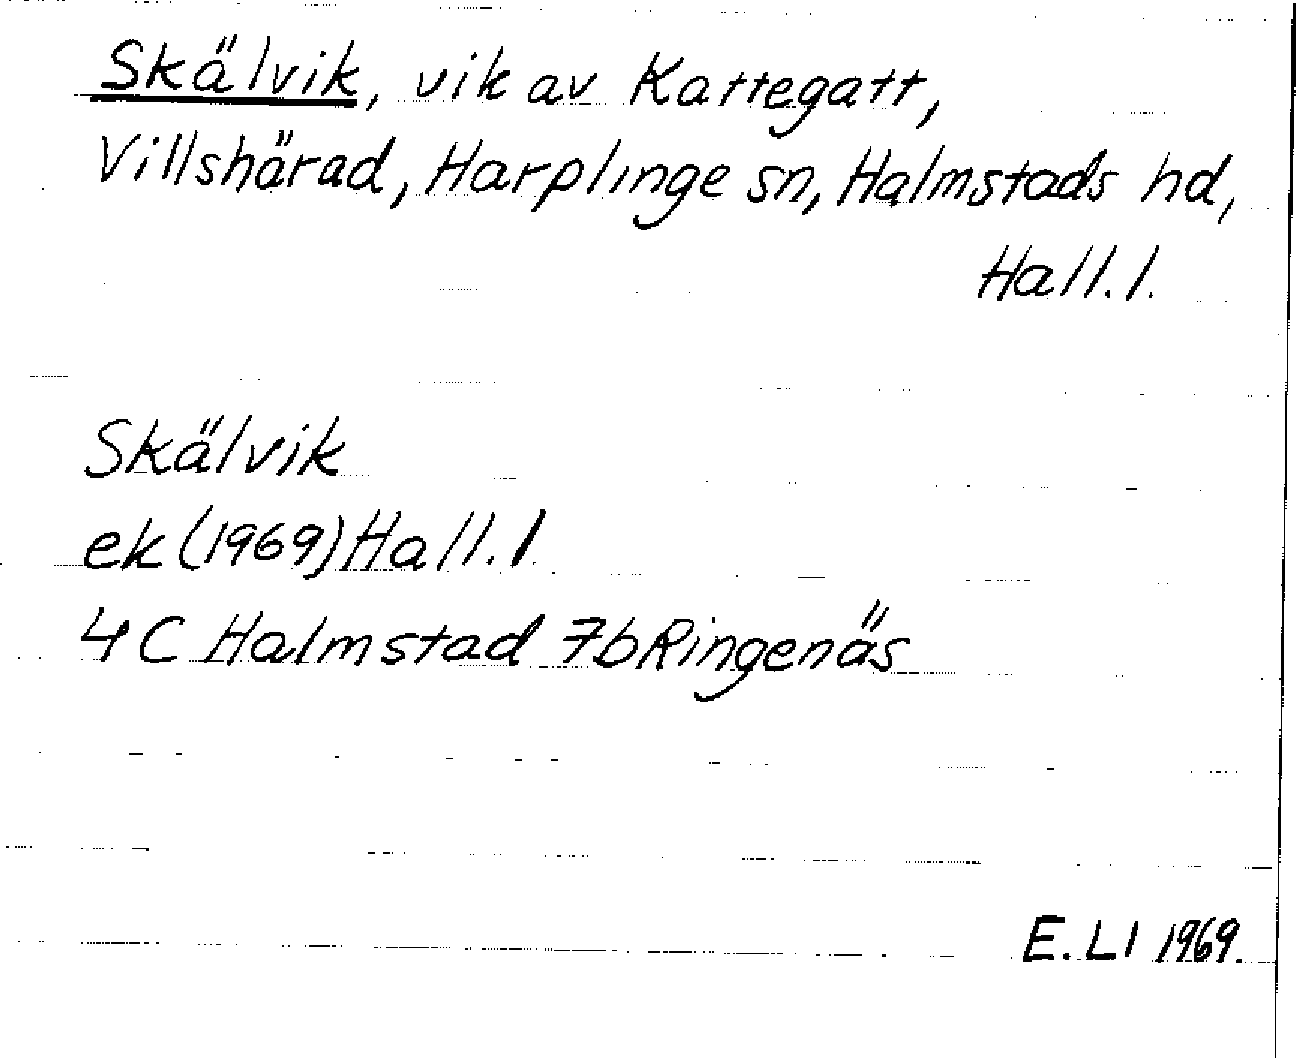 Skälvik, vik av Kattegatt,
Villshärad, Harplinge sn, Halmstads hd,
Hall. l.
Skälvik
ek (1969) Hall. l
4 C Halmstad 7b Ringenäs
E. Ll 1969.